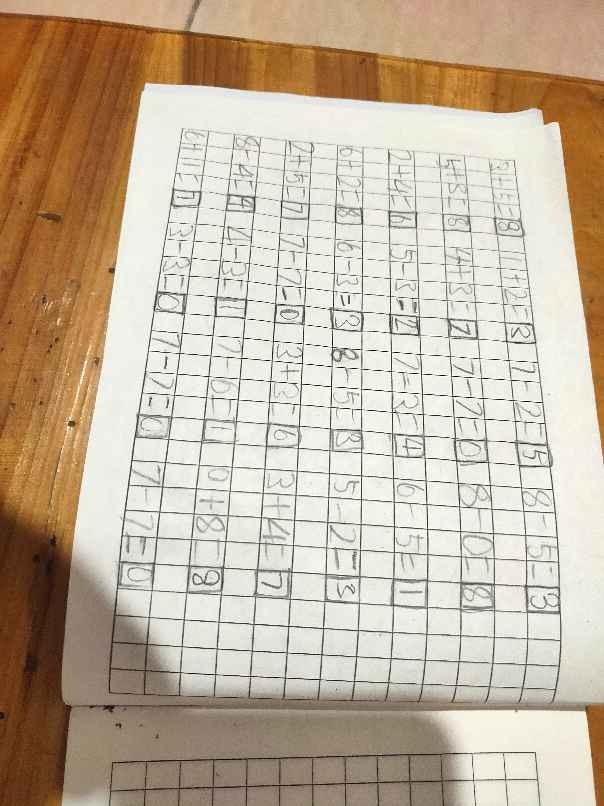 3+5=8 1+2=3 7-2=5 8-5=3
5+3=8 4+3=7 7-7=0 8-0=8
2+4=6 5-3=2 7-3=4 6-5=1
6+2=8 6-3=3 8-5=3 5-2=3
2+5=7 7-7=0 3+3=6 3+4=7
8-4=4 4-3=1 7-6=1 0+8=8
6+1=7 3-3=0 7-7=0 7-7=0